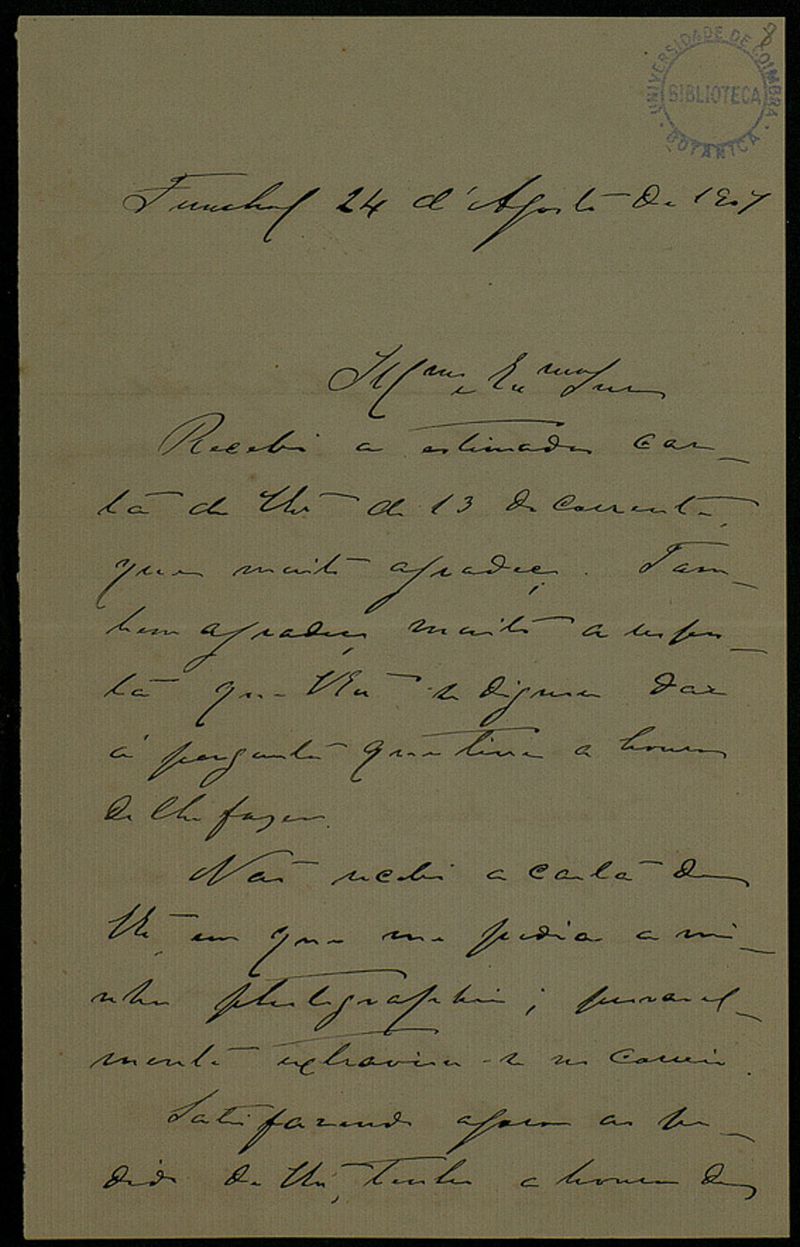 8
UNIVERSIDADE DE COIMBRA
BIBLIOTECA
BOTANICA
Funchal 24 d'Agosto de 1907
Illmo e Exmo Snr
Recebi a estimada car-
ta de VEx de 13 do corrente,
que muito agradeço. Tam-
bem agradeço muito a respos-
ta que VExa se dignou dar
á pergunta que tive a honra
de lhe fazer.
Não recebi a carta de
VEx em que me pedia a mi-
nha photographia; provavel-
mente extraviou-se no correio.
Satisfazendo agora ao pe-
dido de VEx, tenho a honra de